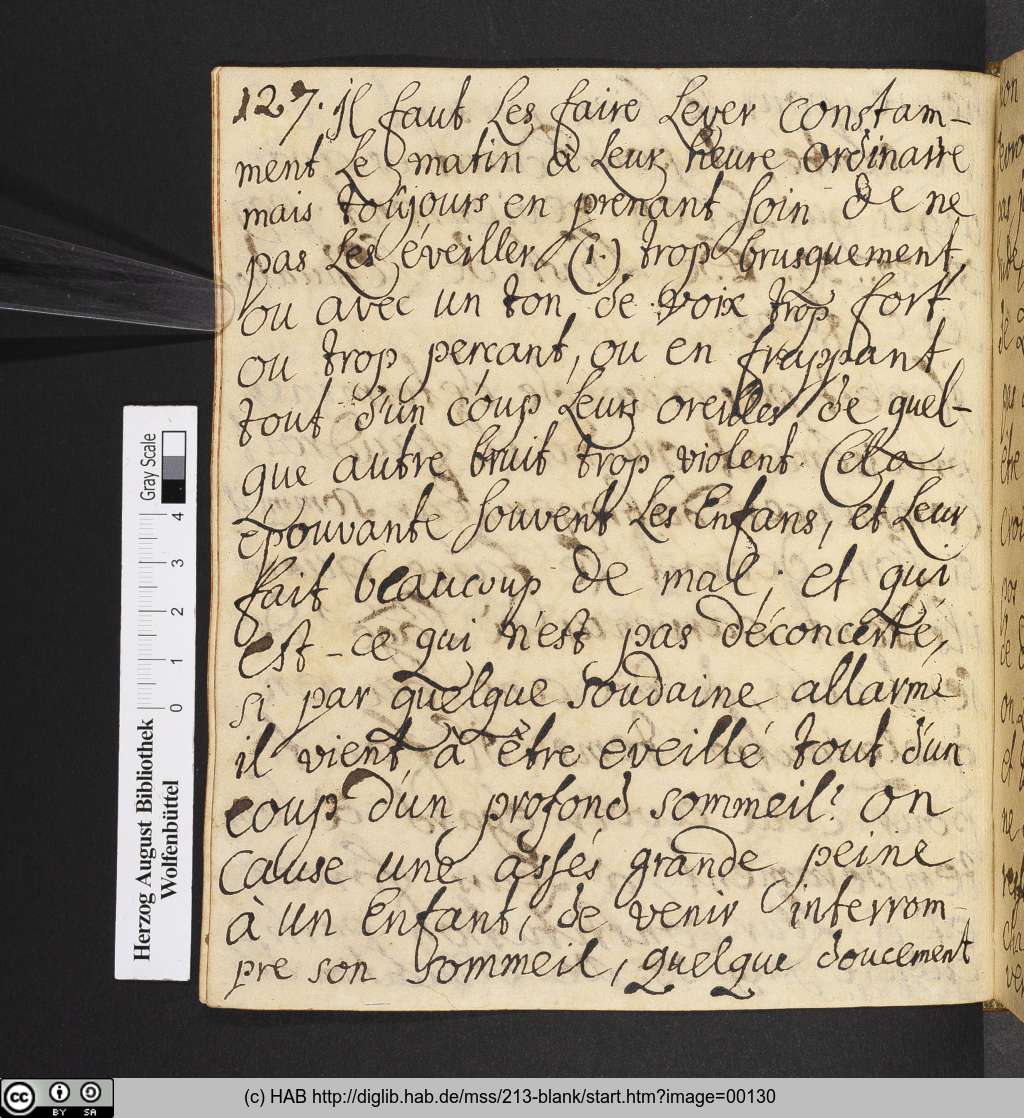 127. Il faut Les faire Lever constam-
ment Le matin à Leur heure ordinaire
mais toûjours en prenant soin de ne
pas Les éveiller (1.) trop brusquement,
ou avec un ton de voix trop fort,
ou trop percant, ou en frappant
tout d'un coup Leurs oreilles de quel-
que autre bruit trop violent. Cela
épouvante souvent Les Enfans, et Leur
fait beaucoup de mal; et qui
est-ce qui n'est pas déconcerté,
si par quelque soudaine allarme
il vient à être éveillé tout d'un
coup d'un profond sommeil? on
cause une assés grande peine
à un Enfant, de venir interrom-
pre son sommeil, quelque doucement
Herzog August Bibliothek
Wolfenbüttel
0 1 2 3 4
Gray Scale
cc BY SA
(c) HAB http://diglib.hab.de/mss/213-blank/start.htm?image=00130